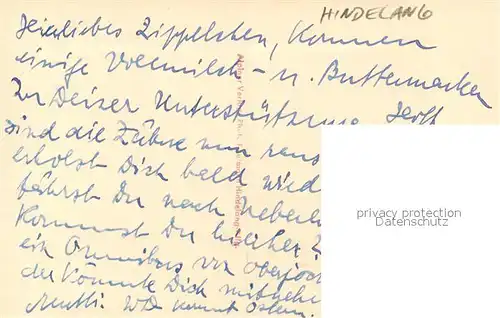 HINDELANG
Herzliebes Zippelchen, kommen
einige Vollmilch- u. Buttermarken
zu Deiner Unterstützung.
sind die Zähne nun raus
erholst Dich bald wied
fährst Du nach
kommst Du hierher
ein Omnibus von Oberjoch
der könnte Dich mitnehm
Mutti. kommt Ostern.
privacy protection
watermark